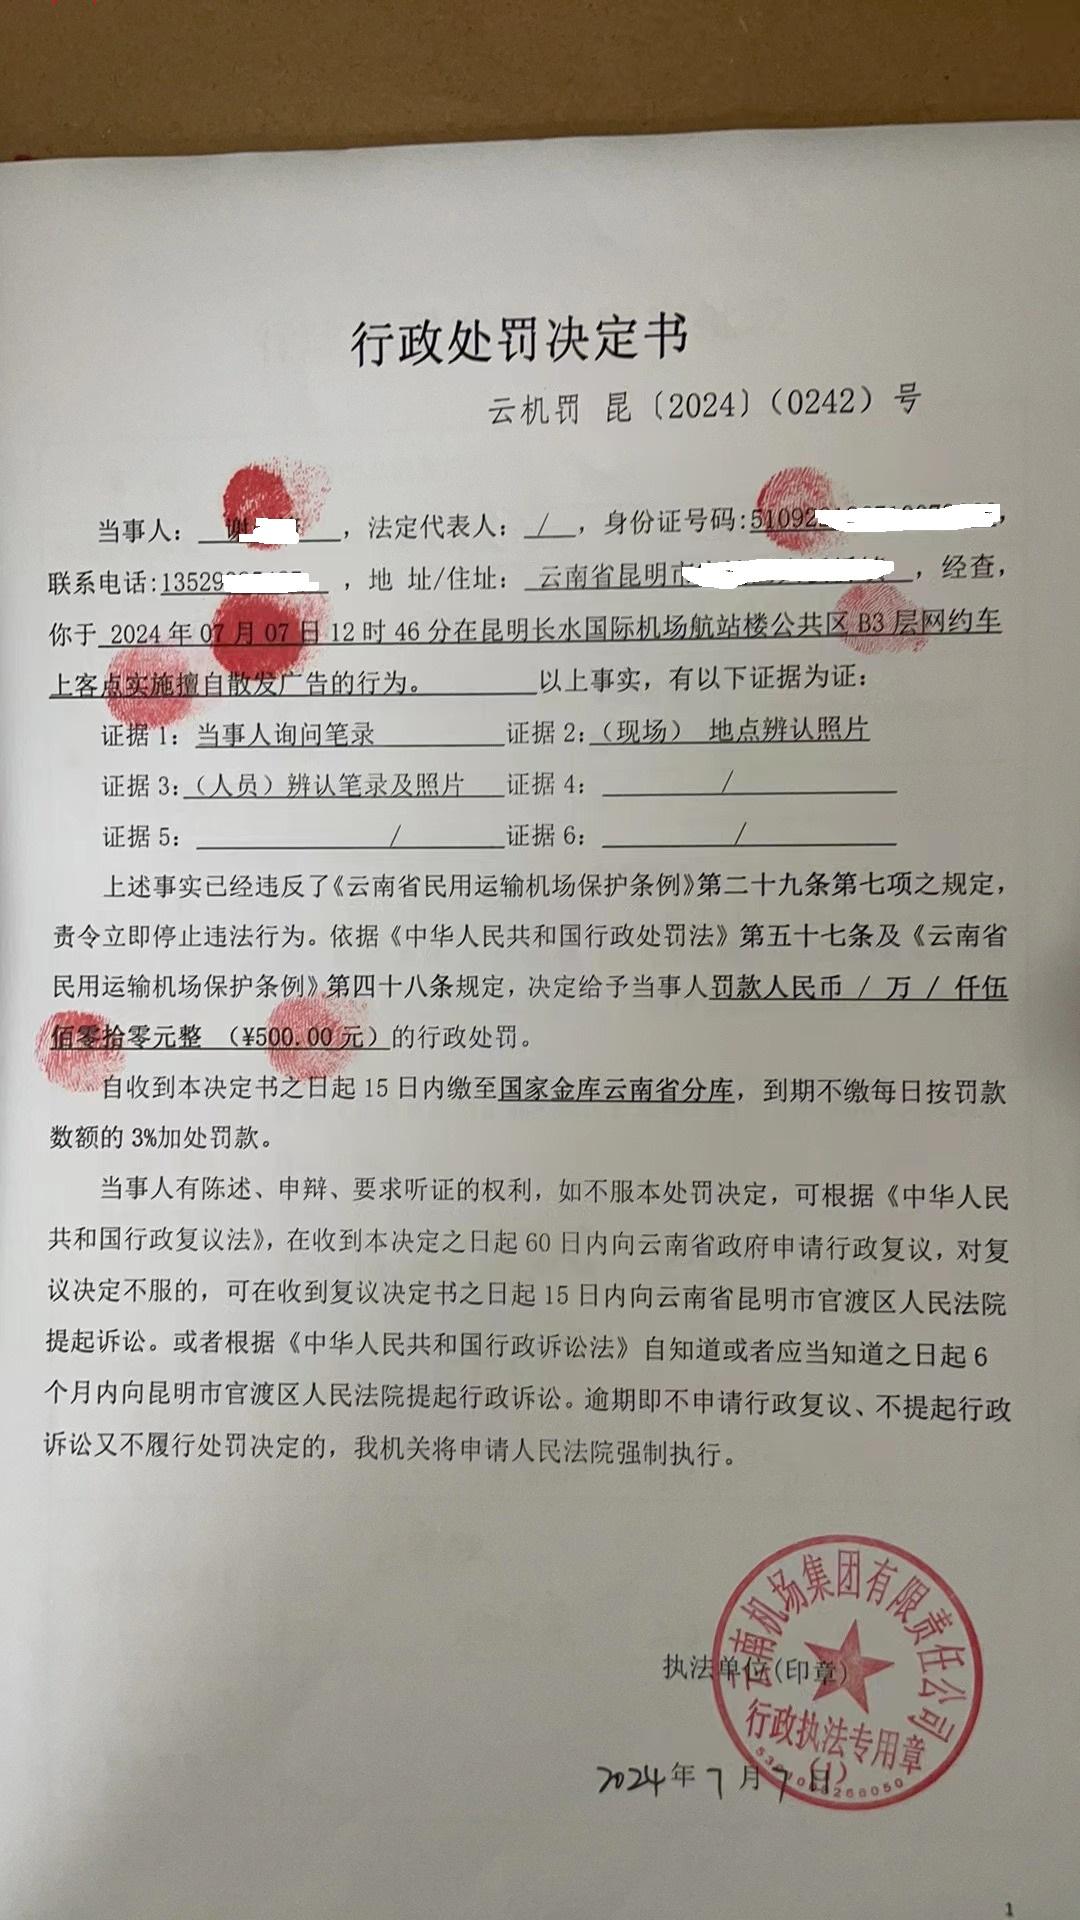 行政处罚决定书
云机罚 昆〔2024〕（0242）号
当事人： 谢 ，法定代表人： / ，身份证号码:51092 ，
联系电话:13529 ，地 址/住址： 云南省昆明市 ，经查，
你于 2024年07月07日12时46分在昆明长水国际机场航站楼公共区B3层网约车
上客点实施擅自散发广告的行为。 以上事实，有以下证据为证：
证据1：当事人询问笔录 证据2：（现场） 地点辨认照片
证据3：（人员）辨认笔录及照片 证据4： /
证据5： / 证据6： /
上述事实已经违反了《云南省民用运输机场保护条例》第二十九条第七项之规定，
责令立即停止违法行为。依据《中华人民共和国行政处罚法》第五十七条及《云南省
民用运输机场保护条例》第四十八条规定，决定给予当事人罚款人民币 / 万 / 仟伍
佰零拾零元整 （¥500.00元）的行政处罚。
自收到本决定书之日起15日内缴至国家金库云南省分库，到期不缴每日按罚款
数额的3%加处罚款。
当事人有陈述、申辩、要求听证的权利，如不服本处罚决定，可根据《中华人民
共和国行政复议法》，在收到本决定之日起60日内向云南省政府申请行政复议，对复
议决定不服的，可在收到复议决定书之日起15日内向云南省昆明市官渡区人民法院
提起诉讼。或者根据《中华人民共和国行政诉讼法》自知道或者应当知道之日起6
个月内向昆明市官渡区人民法院提起行政诉讼。逾期即不申请行政复议、不提起行政
诉讼又不履行处罚决定的，我机关将申请人民法院强制执行。
云南机场集团有限责任公司
执法单位(印章)
行政执法专用章
(1)
2024年7月7日
1